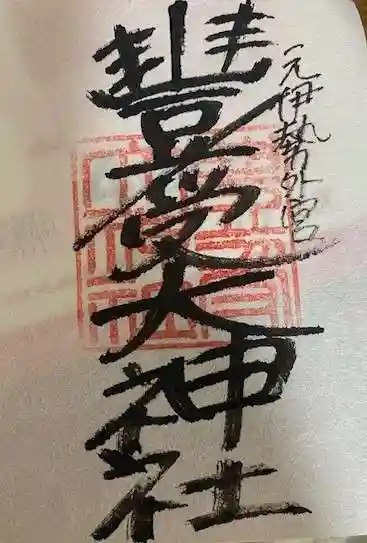 元伊勢外宮
豊受大神社